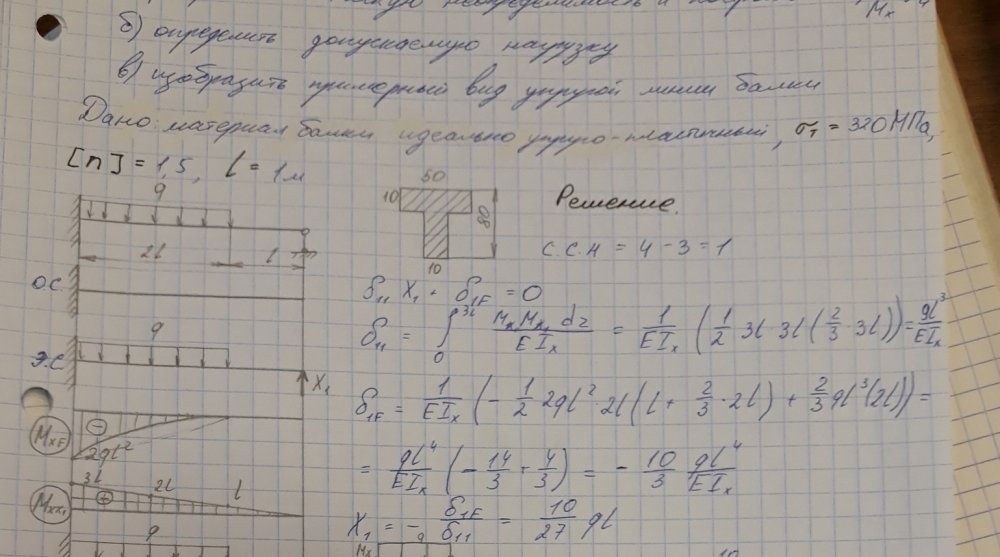 б) определить допускаемую нагрузку
в) изобразить примерный вид упругой линии балки
Дано: материал балки идеально упруго-пластичный, σт = 320 МПа,
[n] = 1,5, l = 1м
q
2l
l
50
10
80
10
Решение.
С.С.Н = 4 - 3 = 1
О.С.
δ11 X1 + δ1F = 0
δ11 = ∫0^3l Mx Mx1 dz / EIx = 1/EIx (1/2 3l 3l (2/3 3l)) = 9l^3/EIx
q
Э.С.
X1
δ1F = 1/EIx (- 1/2 2ql^2 2l (l + 2/3 · 2l) + 2/3 ql^3 (2l)) =
MxF
2ql^2
= ql^4/EIx (- 14/3 + 4/3) = - 10/3 ql^4/EIx
3l
2l
l
Mxx1
X1 = - δ1F/δ11 = 10/27 ql
q
Mx